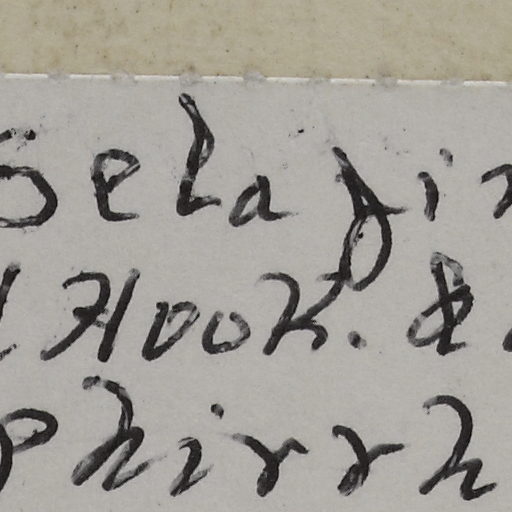 Selagin
(Hook. &
phirrh